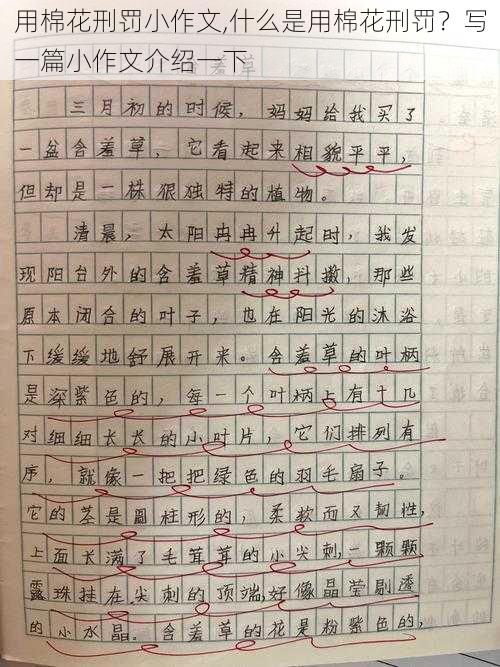 用棉花刑罚小作文,什么是用棉花刑罚？写
一篇小作文介绍一下
三月初的时候，妈妈给我买了
一盆含羞草，它看起来相貌平平，
但却是一株很独特的植物。
清晨，太阳冉冉升起时，我发
现阳台外的含羞草精神抖擞，那些
原本闭合的叶子，也在阳光的沐浴
下缓缓地舒展开来。含羞草的叶柄
是深紫色的，每一个叶柄占有十几
对细细长长的小叶片，它们排列有
序，就像一把把绿色的羽毛扇子。
它的茎是圆柱形的，柔软而又韧性，
上面长满了毛茸茸的小尖刺，一颗颗
露珠挂在尖刺的顶端，好像晶莹剔透
的小水晶。含羞草的花是粉紫色的，